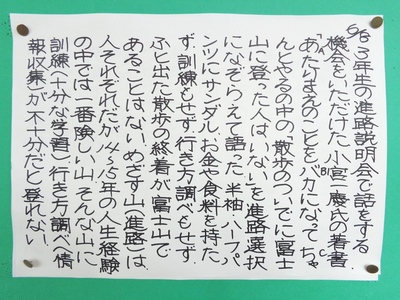 6/6 3年生の進路説明会で話をする
機会をいただけた。小宮一慶氏の著書、
「あたりまえのことをバカになってちゃ
んとやる」の中の「散歩のついでに富士
山に登った人はいない」を進路選択
になぞらえて語った。半袖、ハーフパ
ンツにサンダル、お金や食料を持た
ず、訓練もせず、行き方調べもせず、
ふと出た散歩の終着が富士山で
あることはない。めざす山（進路）は、
人それぞれだが、14～15年の人生経験
の中では一番険しい山。そんな山に
訓練（十分な学習）、行き方調べ（情
報収集）が不十分だと登れない。